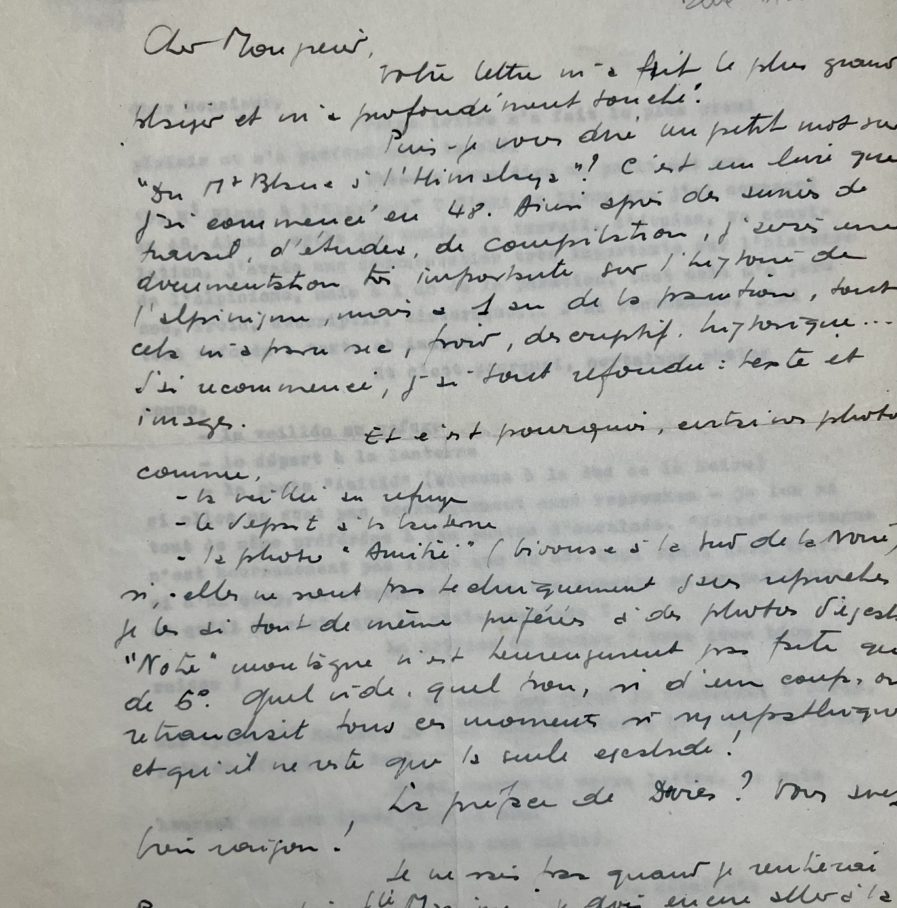 Cher Monsieur,
Votre lettre m'a fait le plus grand
plaisir et m'a profondément touché.
Puis-je vous dire un petit mot sur
"Du Mt Blanc à l'Himalaya"? C'est un livre que
j'ai commencé en 48. Ainsi après des années de
travail, d'études, de compilation, j'avais une
documentation très importante sur l'histoire de
l'alpinisme, mais à 1 an de la parution, tout
cela m'a paru sec, froid, descriptif, historique...
J'ai recommencé, j'ai tout refondu: texte et
images.
Et c'est pourquoi, certaines photos
comme,
- la veillée au refuge
- le départ à la lanterne
- la photo "Amitié" (bivouac à la sud de la Noire)
si, elles ne sont pas techniquement sans reproches
je les ai tout de même préférées à des photos d'escal
"Notre" montagne n'est heureusement pas faite que
de 6°. Quel vide, quel non, si d'un coup, on
retranchait tous ces moments si sympathiques
et qu'il ne reste que la seule escalade!
La préface de ? Vous avez
bien raison!
Je ne sais pas quand je rentrerai
je dois encore aller à la